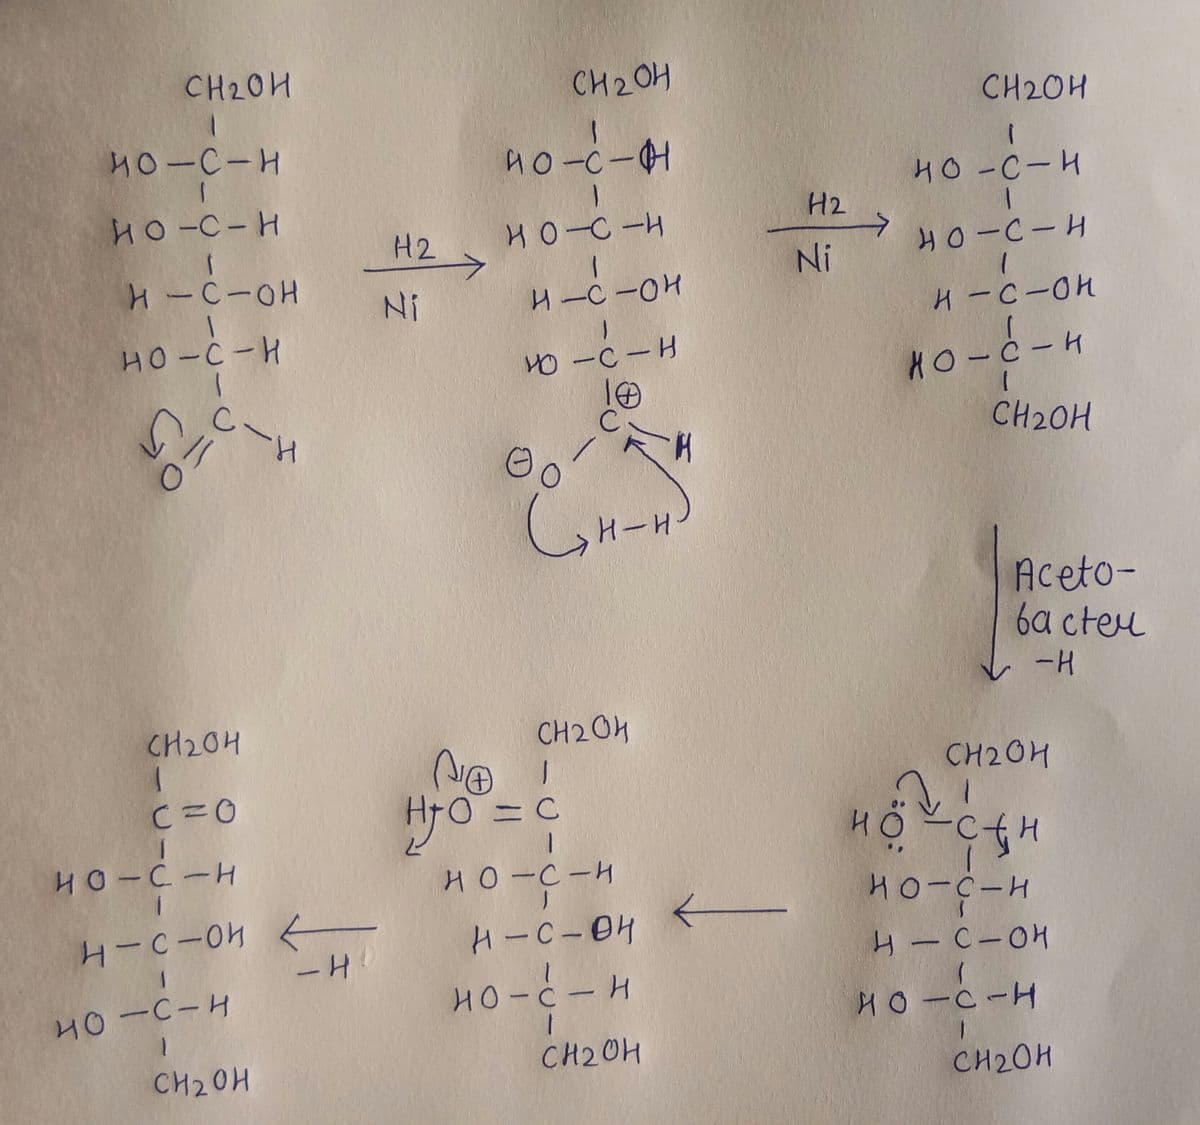 CH2OH
HO-C-H
HO-C-H
H-C-OH
HO-C-H
C-H
O
H2
Ni
CH2OH
HO-C-H
HO-C-H
H-C-OH
HO-C-H
⊕
C-H
⊖O
H-H
H2
Ni
CH2OH
HO-C-H
HO-C-H
H-C-OH
HO-C-H
CH2OH
Aceto-
bacter
-H
CH2OH
HÖ-C-H
HO-C-H
H-C-OH
HO-C-H
CH2OH
CH2OH
⊕
H-O=C
HO-C-H
H-C-OH
HO-C-H
CH2OH
-H
CH2OH
C=O
HO-C-H
H-C-OH
HO-C-H
CH2OH